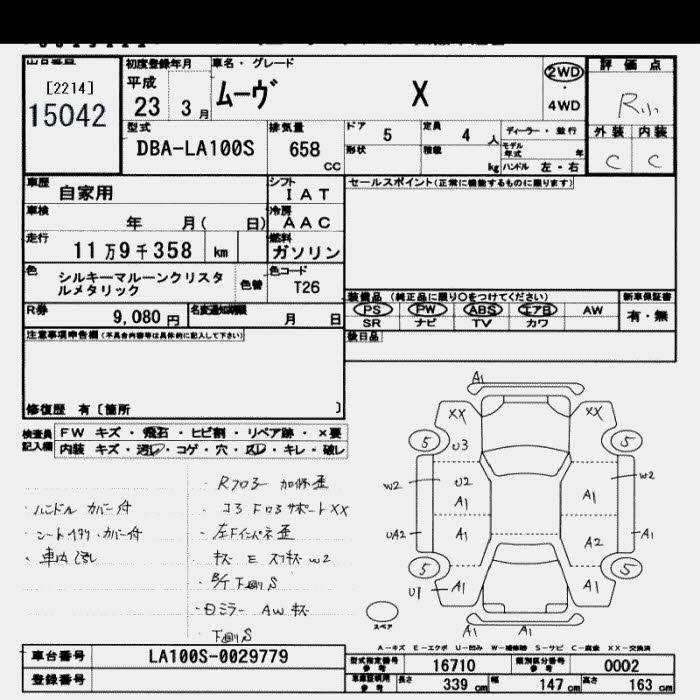 [2214]
15042
初度登録年月
平成
23 3 月
車名・グレード
ムーヴ X
2WD
・
4WD
評価点
R小
外装 内装
C C
型式
DBA-LA100S
排気量
658
CC
ドア 5
定員 4 人
形状
積載 kg
ディーラー・並行
モデル年式 年
ハンドル 左・右
車歴 自家用
シフト
IAT
セールスポイント(正常に機能するものに限ります)
車検 年 月( 日)
冷房
AAC
走行 11万9千358 km
燃料
ガソリン
色 シルキーマルーンクリスタ
ルメタリック
色替
色コード
T26
装備品 (純正品に限り○をつけてください)
PS PW ABS エアB AW
SR ナビ TV カワ
新車保証書
有・無
R券 9,080 円
名変通知期限
月 日
後日品
注意事項申告欄(不具合内容等は具体的に記入して下さい)
修復歴 有〔箇所 〕
検査員
記入欄
FW キズ・飛石・ヒビ割・リペア跡・×要
内装 キズ・汚レ・コゲ・穴・凹レ・キレ・破レ
・ハンドル カバー付
・シートイタク・カバー付
・車内汚レ
・コアF ロアサポートXX
・左Fインパネ歪
キズ E スリキズ W2
・B/F 下廻りS
・日ミラー AW キズ
・下廻りS
A1
XX XX
5 5
U3
W2 U2 W2
A1 A1
UA2 A1 A2 A1
5 5
U1 A1 A1
A1 A1
スペア
A－キズ E－エクボ U－凹み W－補修跡 S－サビ C－腐食 XX－交換済
車台番号 LA100S-0029779
型式指定番号
参考
16710
類別区分番号
参考
0002
登録番号
車庫証明用
参考
長さ 339 cm 幅 147 cm 高さ 163 cm